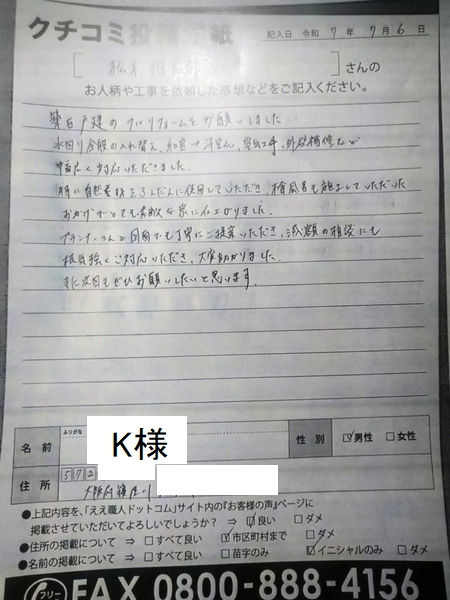 クチコミ投稿用紙
記入日 令和 7 年 7 月 6 日
[ ] さんの
お人柄や工事を依頼した感想などをご記入ください。
築古戸建のフルリフォームをお願いしました
水回り全般の入れ替え、和室→洋室へ、電気工事、外壁補修など
幅広く対応いただきました。
特に自然素材をふんだんに使用していただき、檜風呂も施工していただいた
おかげでとても素敵な家に仕上がりました。
プランナーさんと図面でも丁寧にご提案いただき、減額の相談にも
根気強くご対応いただき、大変助かりました。
また次回もぜひお願いしたいと思います。
ふりがな
名前 K様 性別 ☑男性 □女性
住所 572
大阪府寝屋川
●上記内容を、「ええ職人ドットコム」サイト内の『お客様の声』ページに
掲載させていただいてよろしいでしょうか? ⇒ ☑良い □ダメ
●住所の掲載について ⇒ □すべて良い ☑市区町村まで □ダメ
●名前の掲載について ⇒ □すべて良い □苗字のみ ☑イニシャルのみ □ダメ
フリー
FAX 0800-888-4156